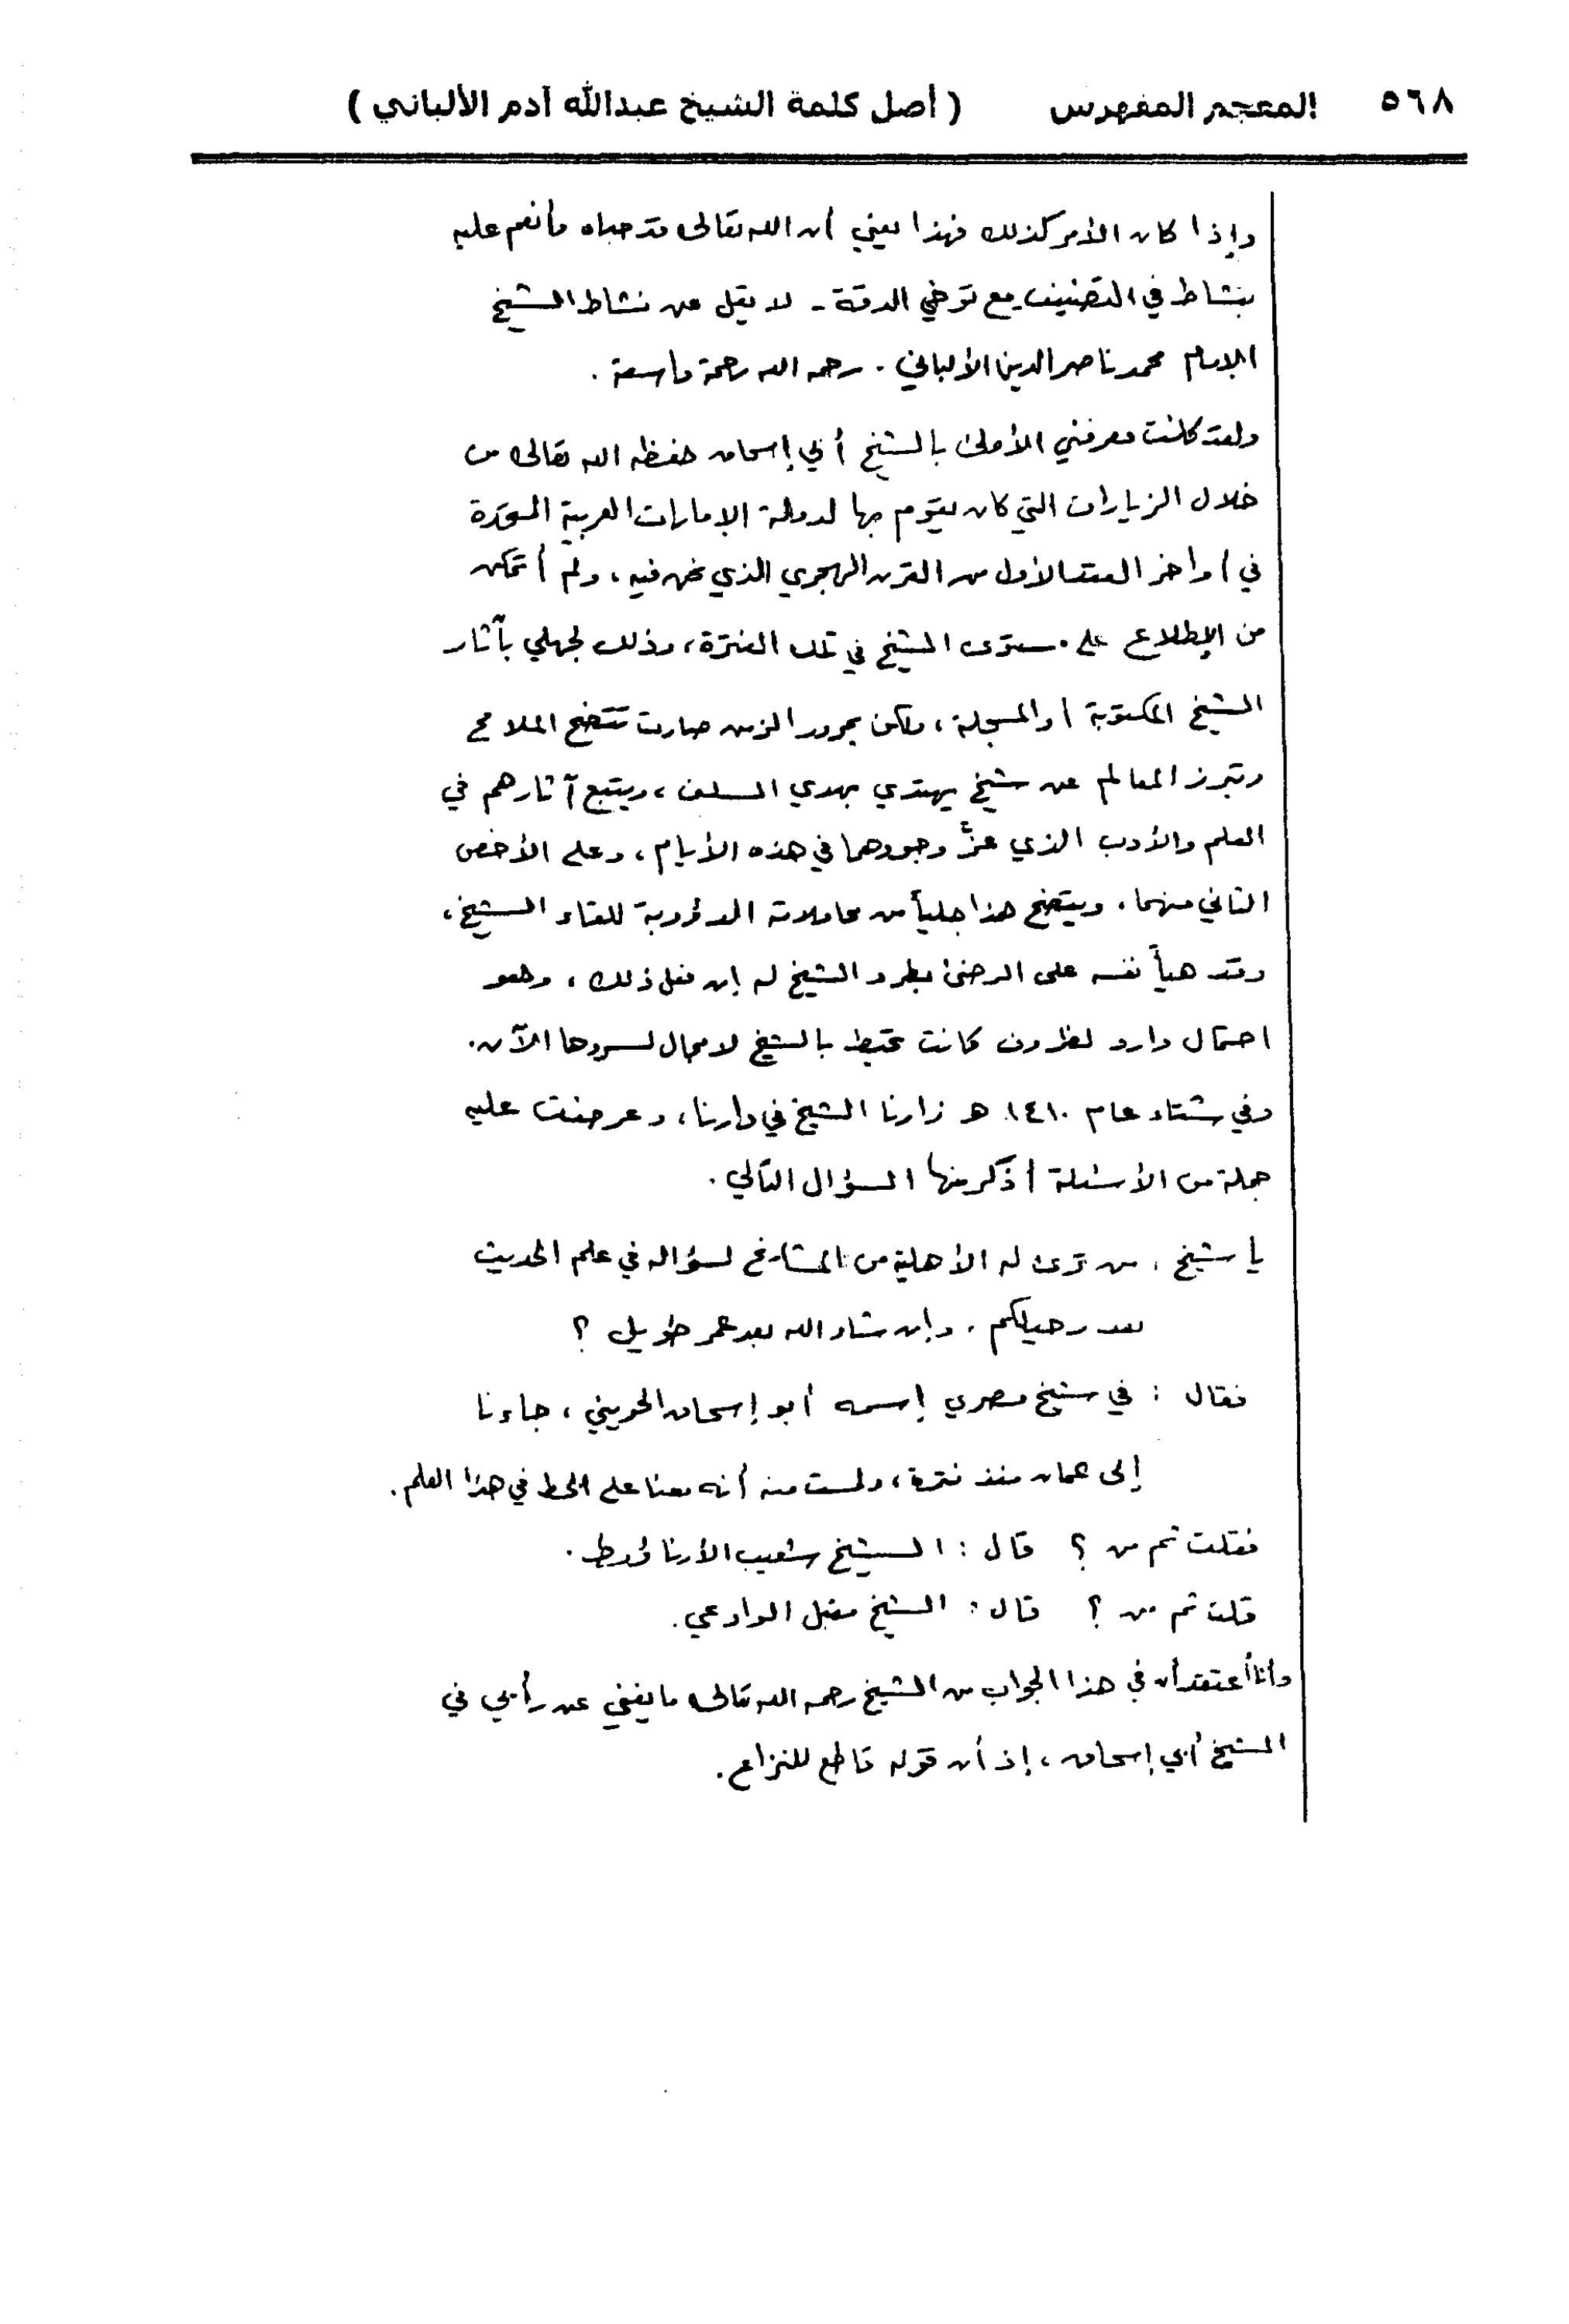 ٥٦٨ المعجم المفهرس ( أصل كلمة الشيخ عبدالله آدم الألباني )
وإذا كان الأمر كذلك فهذا يعني أن الله تعالى قد حباه وأنعم عليه
بنشاط في التصنيف - مع توخي الدقة - لا يقل عن نشاط الشيخ
الإمام محمد ناصر الدين الألباني . رحمه الله رحمة واسعة .
ولقد كانت معرفتي الأولى بالشيخ أبي إسحاق حفظه الله تعالى من
خلال الزيارات التي كان يقوم بها لدولة الإمارات العربية المتحدة
في أواخر العقد الأول من القرن الهجري الذي نحن فيه ، ولم أتمكن
من الإطلاع على مستوى الشيخ في تلك الفترة ، وذلك لجهلي بآثار
الشيخ المكتوبة أو المسجلة ، ولكن بمرور الزمن صارت تتضح الملامح
وتبرز المعالم عن شيخ يهتدي بهدي السلف ، ويتبع آثارهم في
العلم والأدب الذي عزَّ وجودهما في هذه الأيام ، وعلى الأخص
الثاني منهما . ويتضح هذا جلياً من محاولاته الدؤوبة للقاء الشيخ ،
وقد هيأ نفسه على الرضى بطرد الشيخ له إن فعل ذلك ، وهو
احتمال وارد لظروف كانت تحيط بالشيخ لا مجال لسردها الآن .
وفي شتاء عام ١٤١٠ هـ زارنا الشيخ في دارنا ، وعرضت عليه
جملة من الأسئلة أذكر منها السؤال التالي .
يا شيخ ، من ترى له الأهلية من المشايخ لسؤاله في علم الحديث
بعد رحيلكم ، وإن شاء الله بعد عمر طويل ؟
فقال : في شيخ مصري إسمه أبو إسحاق الحويني ، جاءنا
إلى عمان منذ فترة ، ولمست منه أنه معنا على الخط في هذا العلم .
فقلت ثم من ؟ قال : الشيخ شعيب الأرناؤوط .
قلت ثم من ؟ قال : الشيخ مقبل الوادعي .
وأنا أعتقد أن في هذا الجواب من الشيخ رحمه الله تعالى ما يغني عن رأيي في
الشيخ أبي إسحاق ، إذ أن قوله قاطع للنزاع .